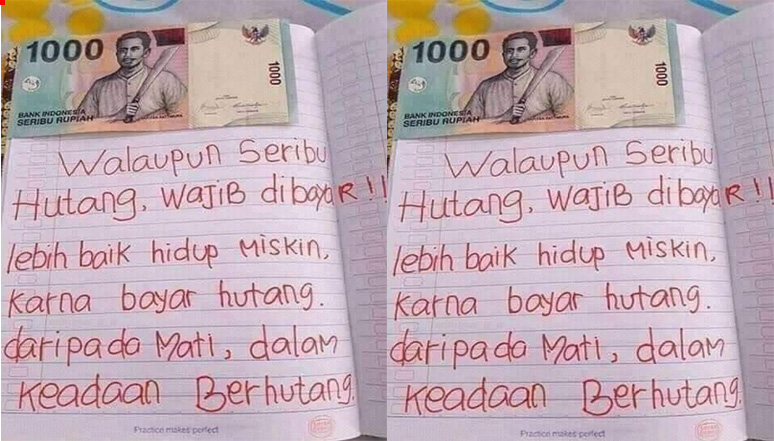 1000
1000
BANK INDONESIA
SERIBU RUPIAH
Walaupun Seribu
Hutang, WAJIB dibayaR!!
lebih baik hidup Miskin,
Karna bayar hutang.
daripada Mati, dalam
Keadaan Berhutang.
Practice makes perfect
1000
1000
BANK INDONESIA
SERIBU RUPIAH
Walaupun Seribu
Hutang, WAJIB dibayaR!!
lebih baik hidup Miskin,
Karna bayar hutang.
daripada Mati, dalam
Keadaan Berhutang.
Practice makes perfect